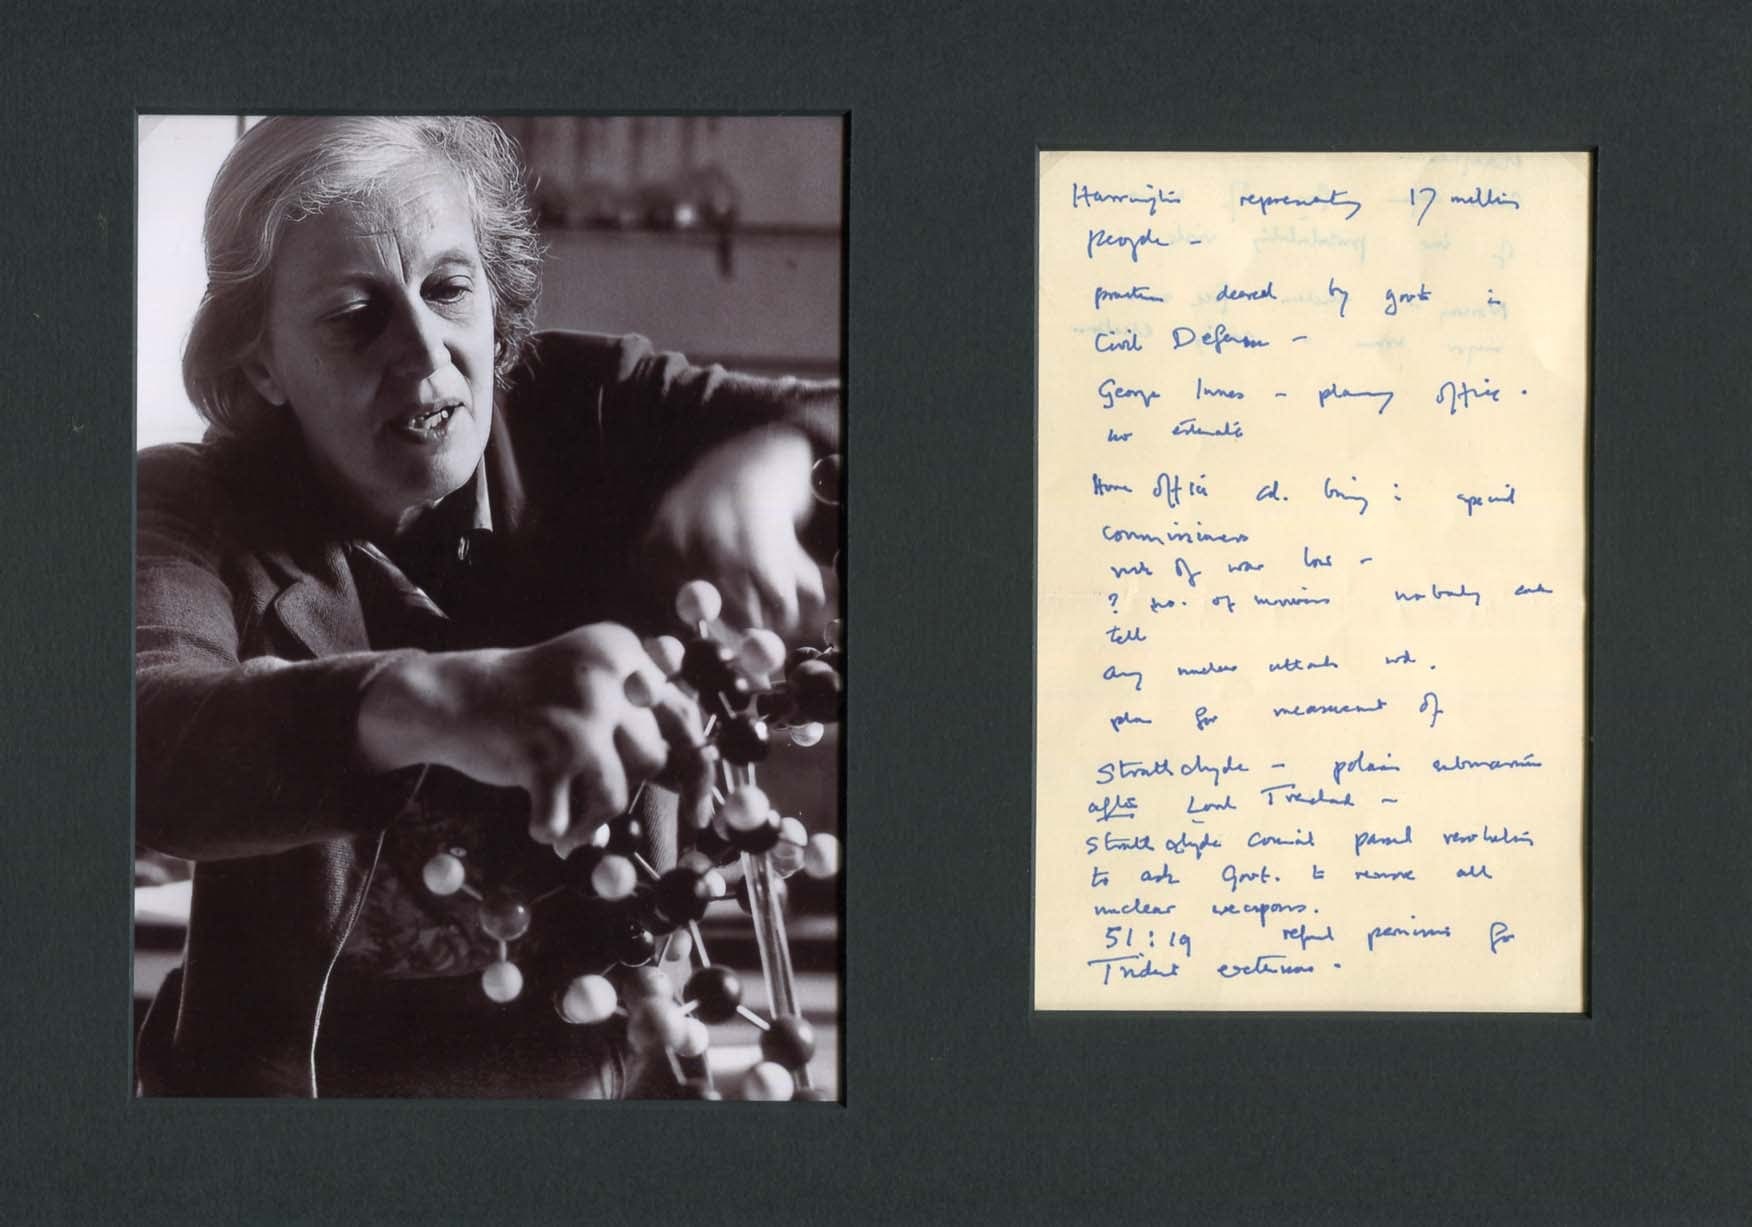 Harrington representing 17 million
people -
by govt in
Civil Defence -
George Innes - planning office.
no estimate
Home Office cd. bring in special
commissioners
risk of war low -
? no. of nobody can
tell
any nuclear attack wd.
plan for measurement of
Strathclyde - polaris submarines
after Lord Trenchard -
Strathclyde Council passed resolution
to ask Govt. to remove all
nuclear weapons.
51 : 19 refused permission for
Trident extensions.